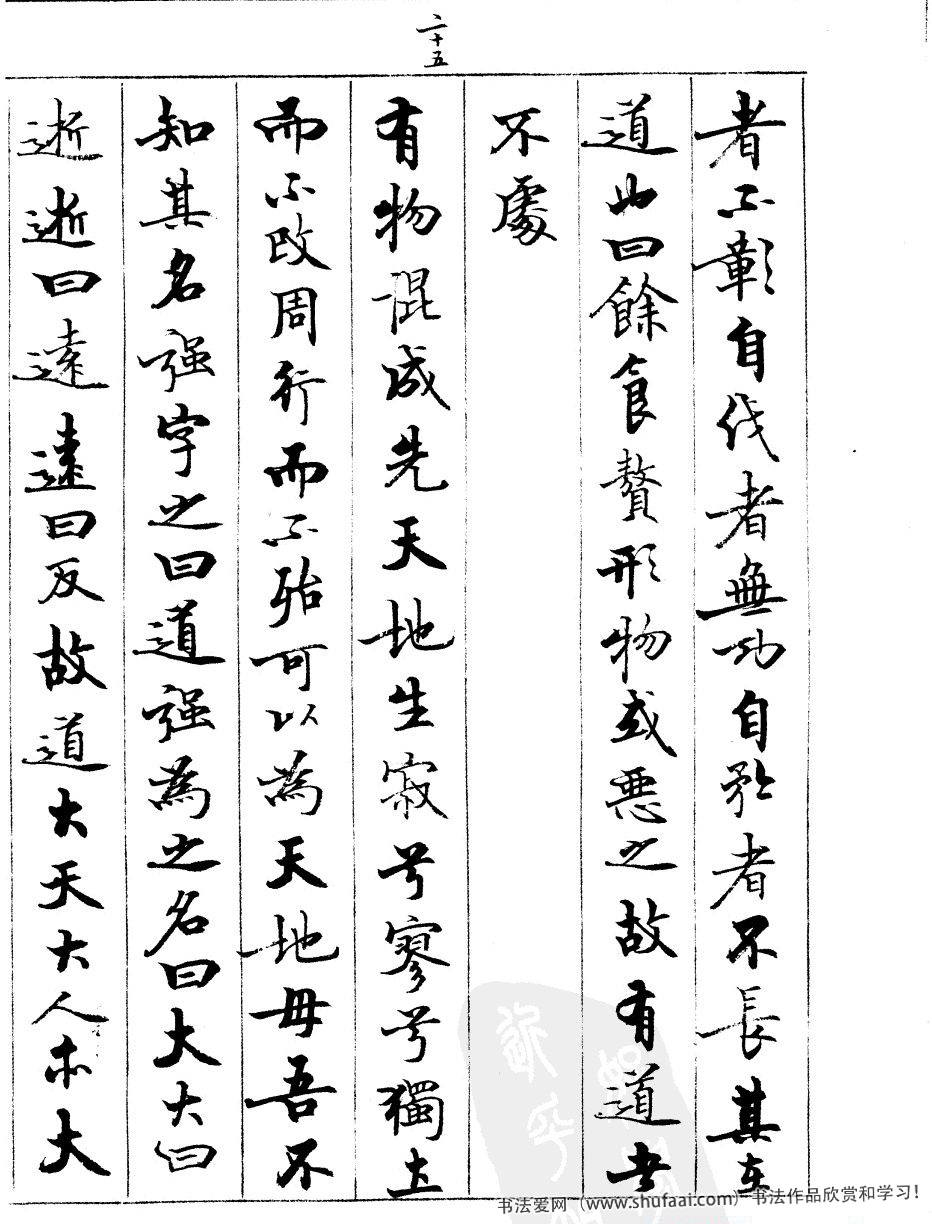 二十五
者不彰自伐者無功自矜者不長其在
道也曰餘食贅形物或惡之故有道者
不處
有物混成先天地生寂兮寥兮獨立
而不改周行而不殆可以為天地母吾不
知其名强字之曰道强為之名曰大大曰
逝逝曰遠遠曰反故道大天大人亦大
书法爱网（www.shufaai.com）书法作品欣赏和学习！